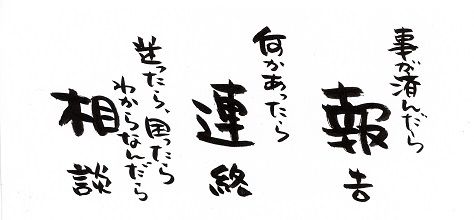 事が済んだら
報告
何かあったら
連絡
迷ったら、困ったら
わからなんだら
相談